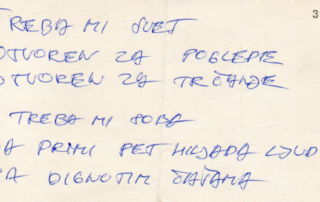 3
TREBA MI SVET
OTVOREN ZA POGLEDE
OTVOREN ZA TRČANJE
TREBA MI SOBA
DA PRIMI PET HILJADA LJUD
SA DIGNUTIM ČAŠAMA